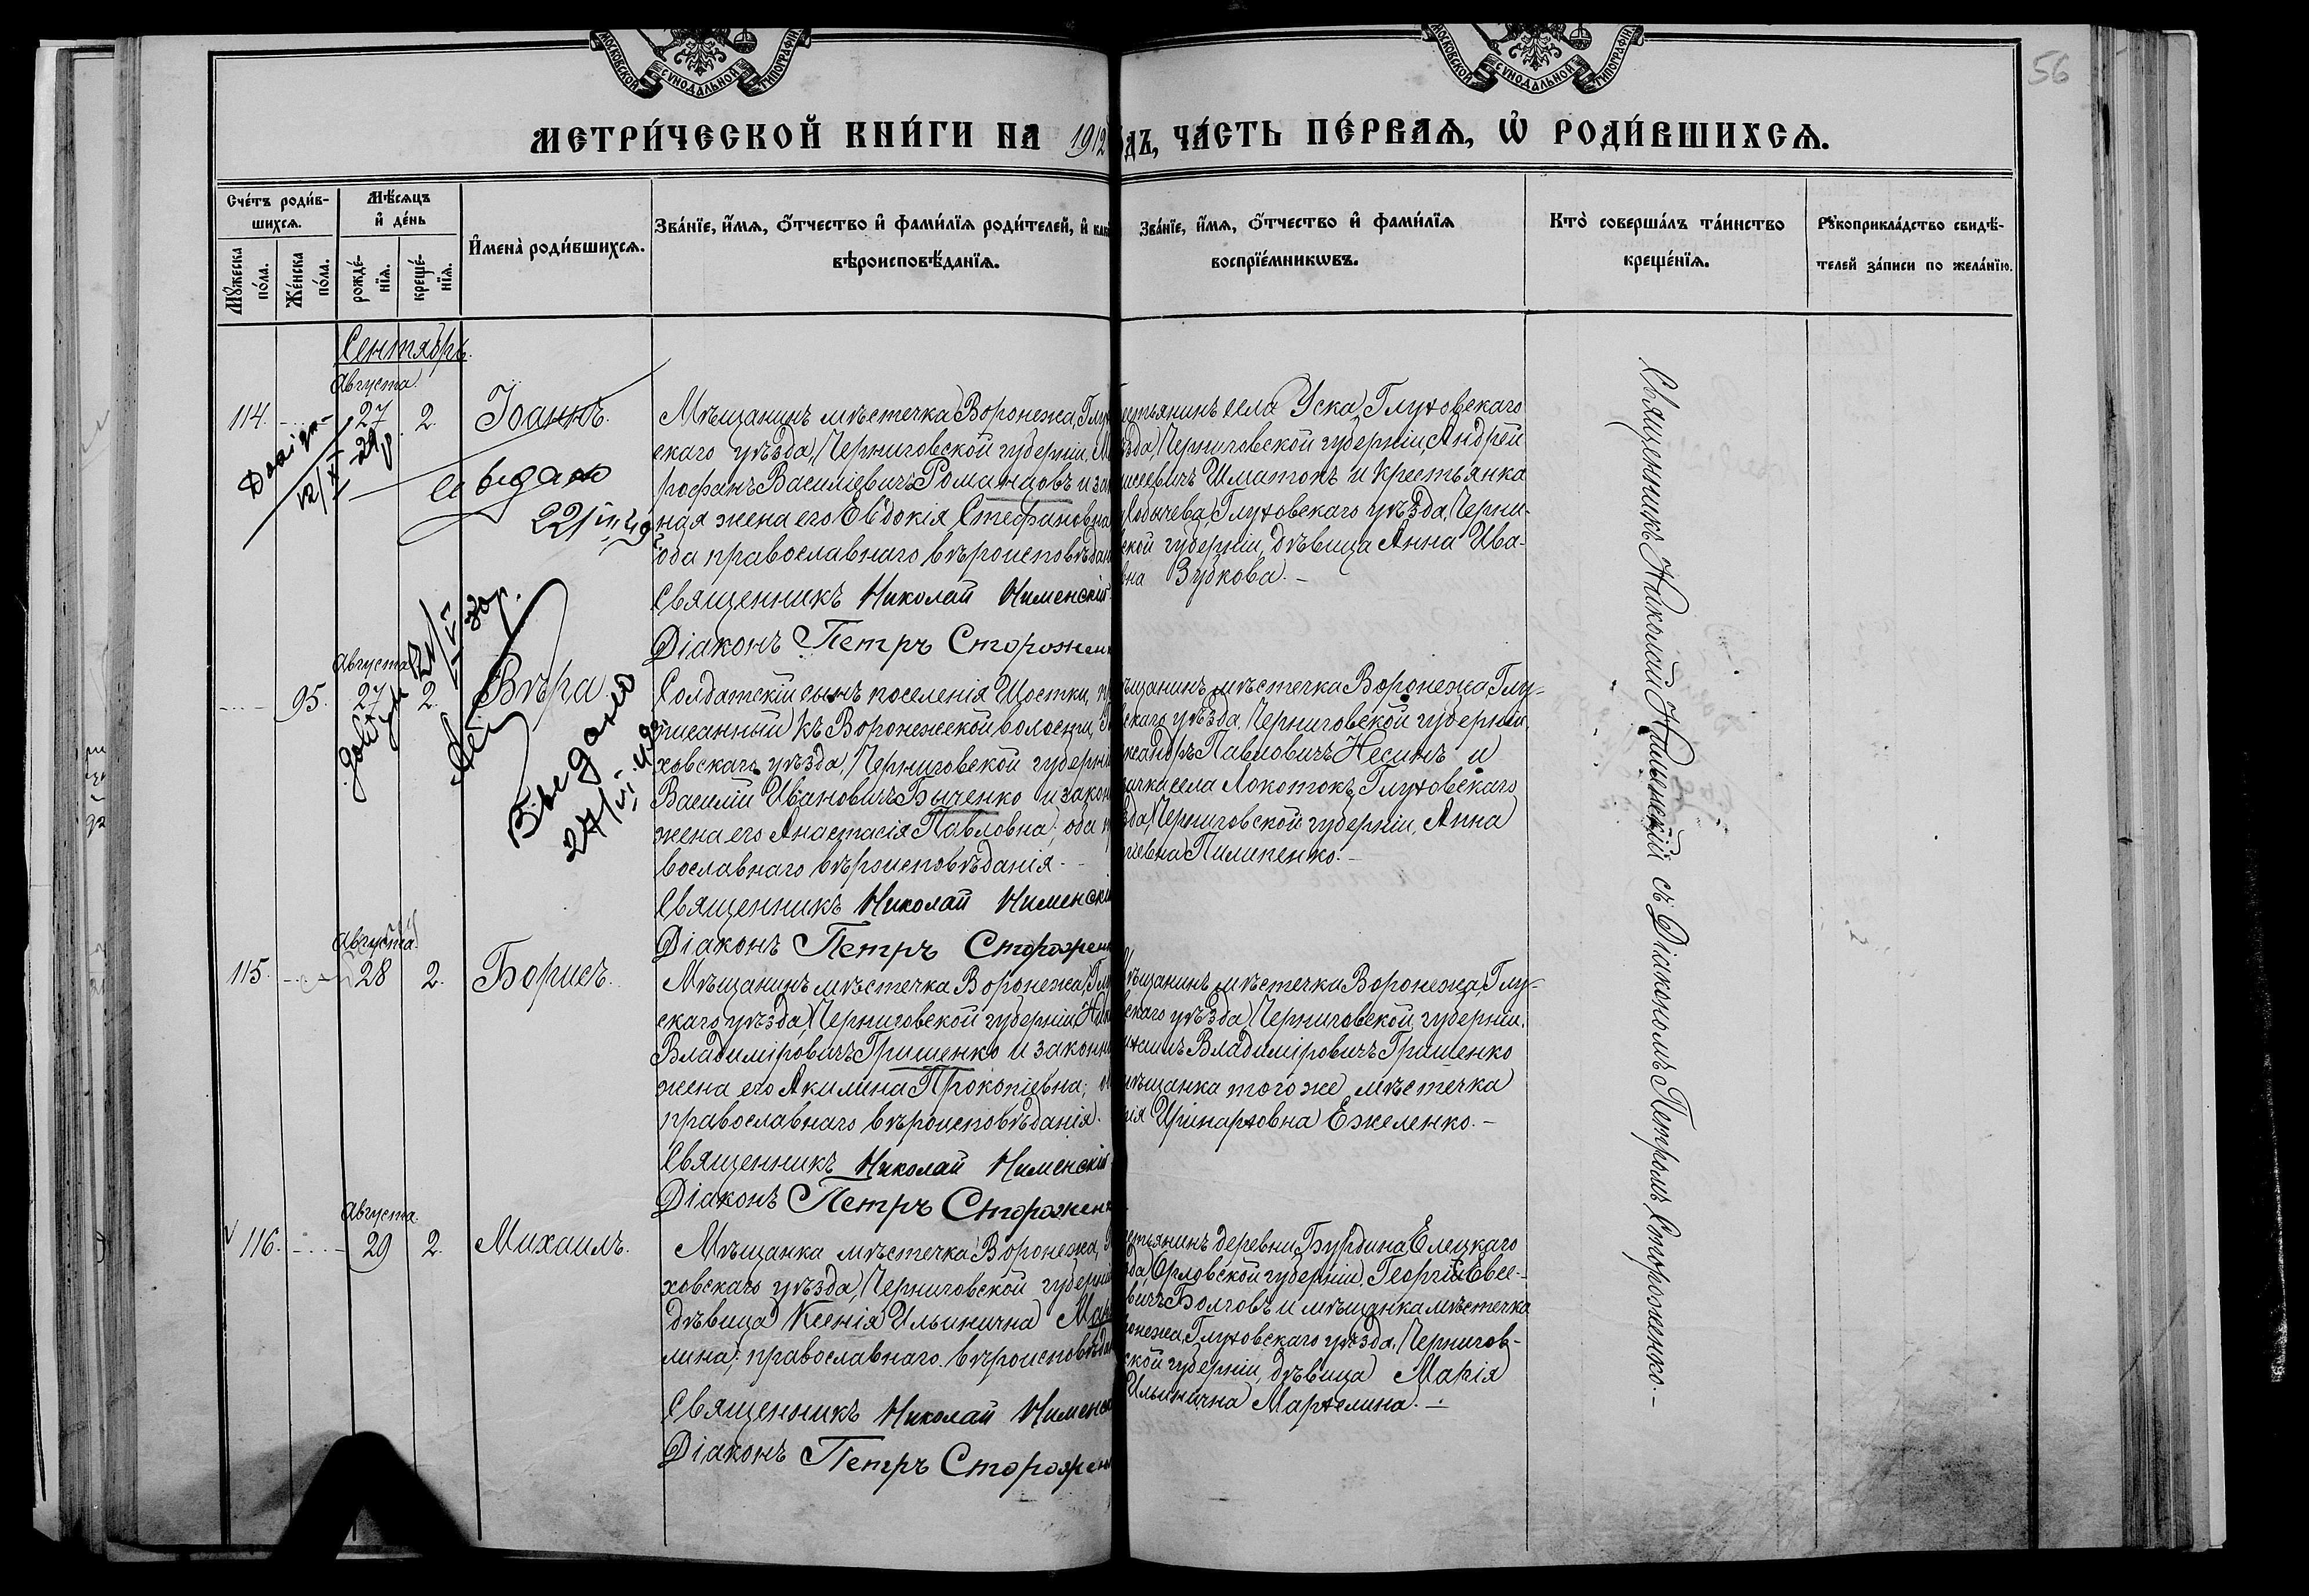 МОСКОВСКОЙ СѴНОДАЛЬНОЙ ТИПОГРАФІИ
МОСКОВСКОЙ СѴНОДАЛЬНОЙ ТИПОГРАФІИ
56
МЕТРИ́ЧЕСКОЙ КНИ́ГИ НА 1912
дъ, ЧА́СТЬ ПЕ́РВАѦ, Ѡ҆ РОДИ́ВШИХСѦ.
Сче́тъ роди́в-
шихсѧ.
Мꙋ́жеска
по́ла.
Же́нска
по́ла.
Мѣ́сѧцъ
и҆ де́нь
рожде́-
нїѧ.
креще́-
нїѧ.
И҆мена̀ роди́вшихсѧ.
Зва́нїе, и҆́мѧ, ѻ҆́тчество и҆ фами́лїѧ роди́телей, и҆
вѣроисповѣ́данїѧ.
Зва́нїе, и҆́мѧ, ѻ҆́тчество и҆ фами́лїѧ
воспрїе́мникѡвъ.
Кто̀ соверша́лъ та́инство
креще́нїѧ.
Рꙋкоприкла́дство свидѣ́-
телей за́писи по жела́нїю.
Сентябрь.
Августа.
114. 27 2. Іоаннъ.
Мѣщанинъ мѣстечка Воронежа, Глух
скаго уѣзда, Черниговской губерніи, М
рофанъ Василіевичъ Романцовъ и зак
ная жена его Евдокія Стефановна
оба православнаго вѣроисповѣдан
Священникъ Николай Нименскій
Діаконъ Петръ Стороженк
выдано
22/IV 49
стьянинъ села Уска, Глуховскаго
зда, Черниговской губерніи, Андрей
исеевичъ Шматокъ и крестьянка
Собычева, Глуховскаго уѣзда, Черни-
ской губерніи, дѣвица Анна Ива-
вна Зубкова.
Августа
95. 27 2. Вѣра.
Солдатскій сынъ поселенія Шостки, пр
писанный къ Воронежской волости, Г
ховскаго уѣзда, Черниговской губерні
Василій Ивановичъ Быченко и закон
жена его Анастасія Павловна; оба п
вославнаго вѣроисповѣданія.
Священникъ Николай Нименскі
Діаконъ Петръ Стороженк
Выдано
27/VI
ѣщанинъ мѣстечка Воронежа, Глу-
скаго уѣзда, Черниговской губерніи,
ксандръ Павловичъ Несинъ и
ачка села Локотокъ, Глуховскаго
зда, Черниговской губерніи, Анна
іевна Пилипенко.
Августа.
115. 28 2. Борисъ.
Мѣщанинъ мѣстечка Воронежа, Глу
скаго уѣзда, Черниговской губерніи,
Владиміровичъ Гришенко и законн
жена его Акилина Прокопіевна; о
православнаго вѣроисповѣданія.
Священникъ Николай Нименскій
Діаконъ Петръ Стороженк
Мѣщанинъ мѣстечка Воронежа, Глу-
скаго уѣзда, Черниговской губерніи,
ихаилъ Владиміровичъ Гришенко
мѣщанка того же мѣстечка
рія Иринарховна Ежеленко.
Августа.
116. 29 2. Михаилъ.
Мѣщанка мѣстечка Воронежа, Г
ховскаго уѣзда, Черниговской губерні
дѣвица Ксенія Ильинична Мар
лина; православнаго вѣроисповѣдан
Священникъ Николай Нименс
Діаконъ Петръ Стороженк
стьянинъ деревни Бурдина, Елецкаго
зда, Орловской губерніи, Георгій Евсе-
вичъ Болговъ и мѣщанка мѣстечка
онежа, Глуховскаго уѣзда, Чернигов-
ской губерніи, дѣвица Марія
Ильинична Мархелина.
Священникъ Николай Нименскій съ Діакономъ Петромъ Стороженко.